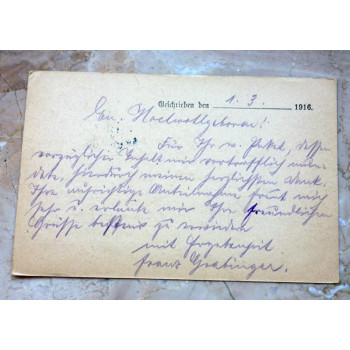 Geschrieben den 1. 3. 1916.
Eu. Hochwohlgeboren!
Für Ihr w. Paket, dessen
vorzüglicher Inhalt mir vortrefflich mun-
dete, hiedurch meinen herzlichsten Dank.
Ihre aufrichtige Anteilnahme freut mich
sehr u. erlaube mir Ihre freundlichen
Grüsse bestens zu erwidern
mit Ergebenheit
Franz Grabinger.